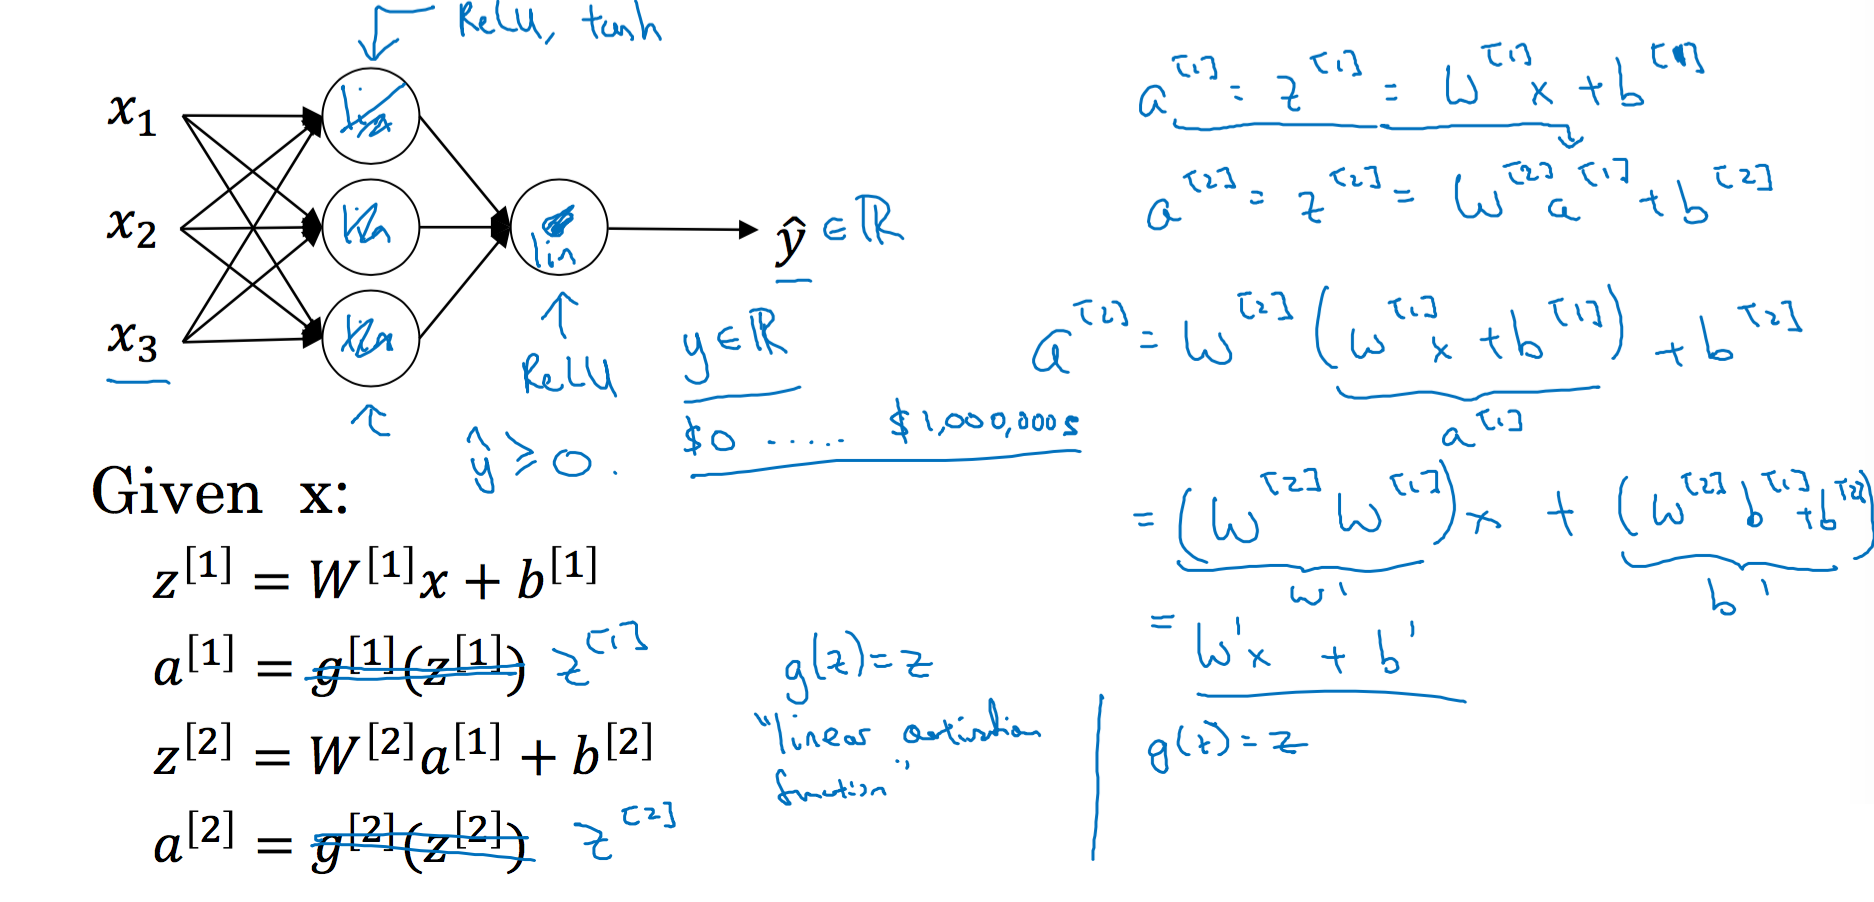 ReLU, tanh
x₁
x₂
x₃
lin
ŷ ∈ ℝ
ReLU
y ∈ ℝ
ŷ ≥ 0.
$0 ..... $1,000,000s
Given x:
z^[1] = W^[1]x + b^[1]
a^[1] = g^[1](z^[1]) z^[1]
z^[2] = W^[2]a^[1] + b^[2]
a^[2] = g^[2](z^[2]) z^[2]
g(z) = z
"linear activation
function"
a^[1] = z^[1] = W^[1]x + b^[1]
a^[2] = z^[2] = W^[2]a^[1] + b^[2]
a^[2] = W^[2](W^[1]x + b^[1]) + b^[2]
a^[1]
= (W^[2]W^[1])x + (W^[2]b^[1] + b^[2])
W' b'
= W'x + b'
g(z) = z